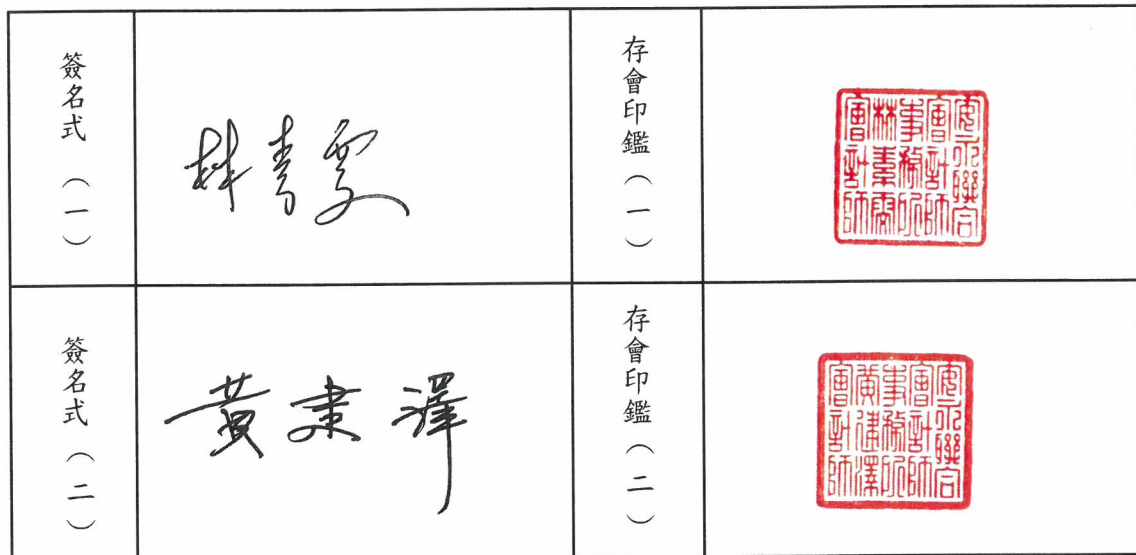 簽名式（一）
林素雯
存會印鑑（一）
安永聯合
會計師
事務所
林素雯
會計師
簽名式（二）
黃建澤
存會印鑑（二）
安永聯合
會計師
事務所
黃建澤
會計師